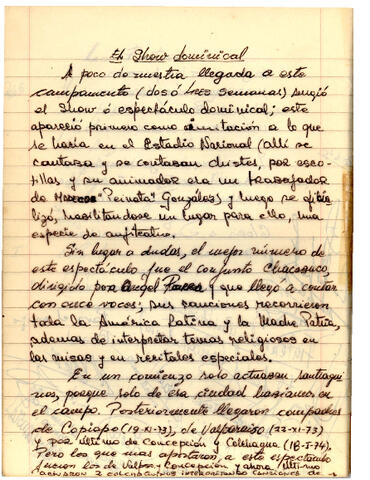 El Show dominical
A poco de nuestra llegada a este
campamento (dos ó tres semanas) surgió
el Show ó espectáculo dominical; este
apareció primero como imitación a lo que
se haria en el Estadio Nacional (allí se
cantaba y se contaban chistes, por esco-
tillas y su animador era un trabajador
de "Peineta" González) y luego se oficia
lizó, habilitandose un lugar para ello, una
especie de anfiteatro.
Sin lugar a dudas, el mejor número de
este espectáculo fue el conjunto Chacabuco,
dirigido por Angel Parra y que llegó a contar
con once voces; sus canciones recorrieron
toda la América Latina y la Madre Patria,
ademas de interpretar temas religiosos en
las misas y en recitales especiales.
En un comienzo solo actuaban santiagui
nos, porque solo de esa ciudad habiamos en
el campo. Posteriormente llegaron compadres
de Copiapo (19-XI-73), de Valparaiso (22-XI-73)
y por último de Concepción y Colchagua (18-I-74).
Pero los que mas aportaron, a este espectáculo
fueron los de Valpo.- Concepción y ahora último
actuaron 2 colchaguinos interpretando canciones de